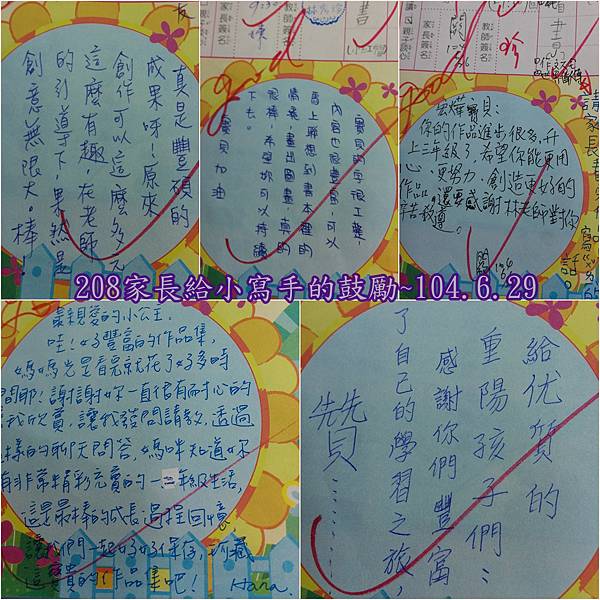 真是豐碩的
成果呀!原來
創作可以這麼多元
這麼有趣,在老師
的引導下,果然是
創意無限大。棒!
寶貝的字很工整,
內容也很豐富,可以
馬上聯想到書本裡的
情景,畫出圖畫,真的
很棒,希望妳可以持續
下去。
寶貝加油
寶貝:
你的作品進步很多,升
上三年級了,希望你能更用
心、更努力,創造更好的
作品,還要感謝林老師對你
辛苦教導。
208家長給小寫手的鼓勵~104.6.29
最親愛的小公主,
哇!好豐富的作品集,
媽媽光是看完就花了好多時
間耶!謝謝妳一直很有耐心的
我欣賞,讓我發問請教,透過
樣的聊天問答,媽咪知道妳
有非常精彩充實的一二年級生活,
這是最棒的成長過程回憶
讓我們一起好好保存,珍藏
這寶貴的作品集吧! Hana.
給优質的
重陽孩子們:
感謝你們豐富
了自己的學習之旅,
贊……